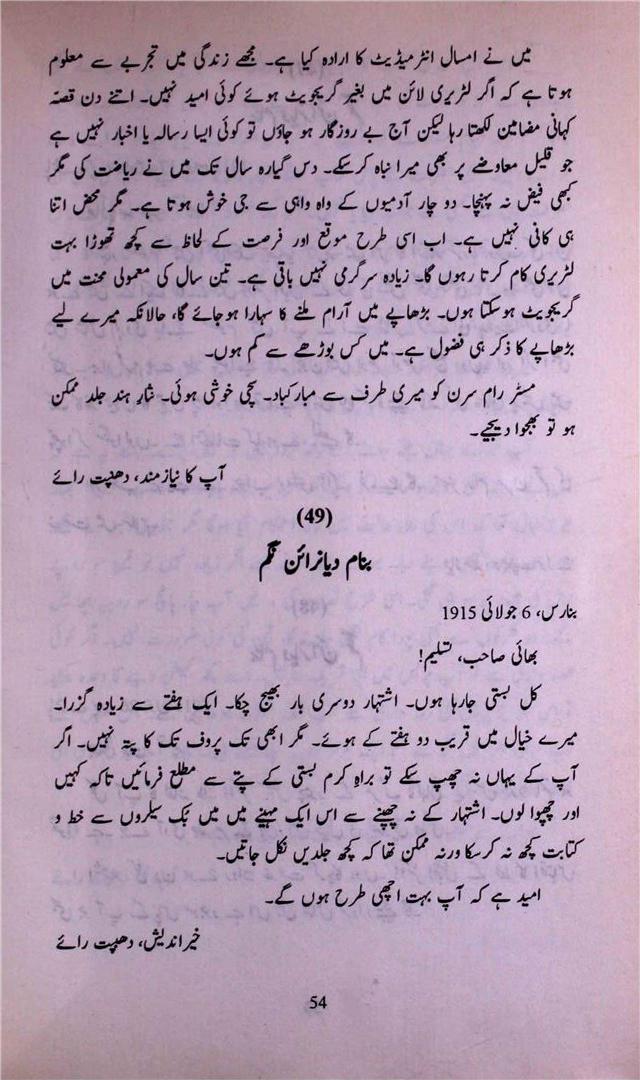 میں نے امسال انٹرمیڈیٹ کا ارادہ کیا ہے۔ مجھے زندگی میں تجربے سے معلوم
ہوتا ہے کہ اگر لٹریری لائن میں بغیر گریجویٹ ہوئے کوئی امید نہیں۔ اتنے دن قصّہ
کہانی مضامین لکھتا رہا لیکن آج بے روزگار ہو جاؤں تو کوئی ایسا رسالہ یا اخبار نہیں ہے
جو قلیل معاوضے پر بھی میرا نباہ کرسکے۔ دس گیارہ سال تک میں نے ریاضت کی مگر
کبھی فیض نہ پہنچا۔ دو چار آدمیوں کے واہ واہی سے جی خوش ہوتا ہے۔ مگر محض اتنا
ہی کافی نہیں ہے۔ اب اسی طرح موقع اور فرصت کے لحاظ سے کچھ تھوڑا بہت
لٹریری کام کرتا رہوں گا۔ زیادہ سرگرمی نہیں باقی ہے۔ تین سال کی معمولی محنت میں
گریجویٹ ہوسکتا ہوں۔ بڑھاپے میں آرام ملنے کا سہارا ہوجائے گا، حالانکہ میرے لیے
بڑھاپے کا ذکر ہی فضول ہے۔ میں کس بوڑھے سے کم ہوں۔
مسٹر رام سرن کو میری طرف سے مبارکباد۔ سچی خوشی ہوئی۔ نثارِ ہند جلد ممکن
ہو تو بھجوا دیجیے۔
آپ کا نیازمند، دھنپت رائے
(49)
بنام دیانرائن نگم
بنارس، 6 جولائی 1915
بھائی صاحب، تسلیم!
کل بستی جارہا ہوں۔ اشتہار دوسری بار بھیج چکا۔ ایک ہفتے سے زیادہ گزرا۔
میرے خیال میں قریب دو ہفتے کے ہوئے۔ مگر ابھی تک پروف تک کا پتہ نہیں۔ اگر
آپ کے یہاں نہ چھپ سکے تو براہِ کرم بستی کے پتے سے مطلع فرمائیں تاکہ کہیں
اور چھپوا لوں۔ اشتہار کے نہ چھپنے سے اس ایک مہینے میں میں بک سیلروں سے خط و
کتابت کچھ نہ کرسکا ورنہ ممکن تھا کہ کچھ جلدیں نکل جاتیں۔
امید ہے کہ آپ بہت اچھی طرح ہوں گے۔
خیراندیش، دھنپت رائے
54